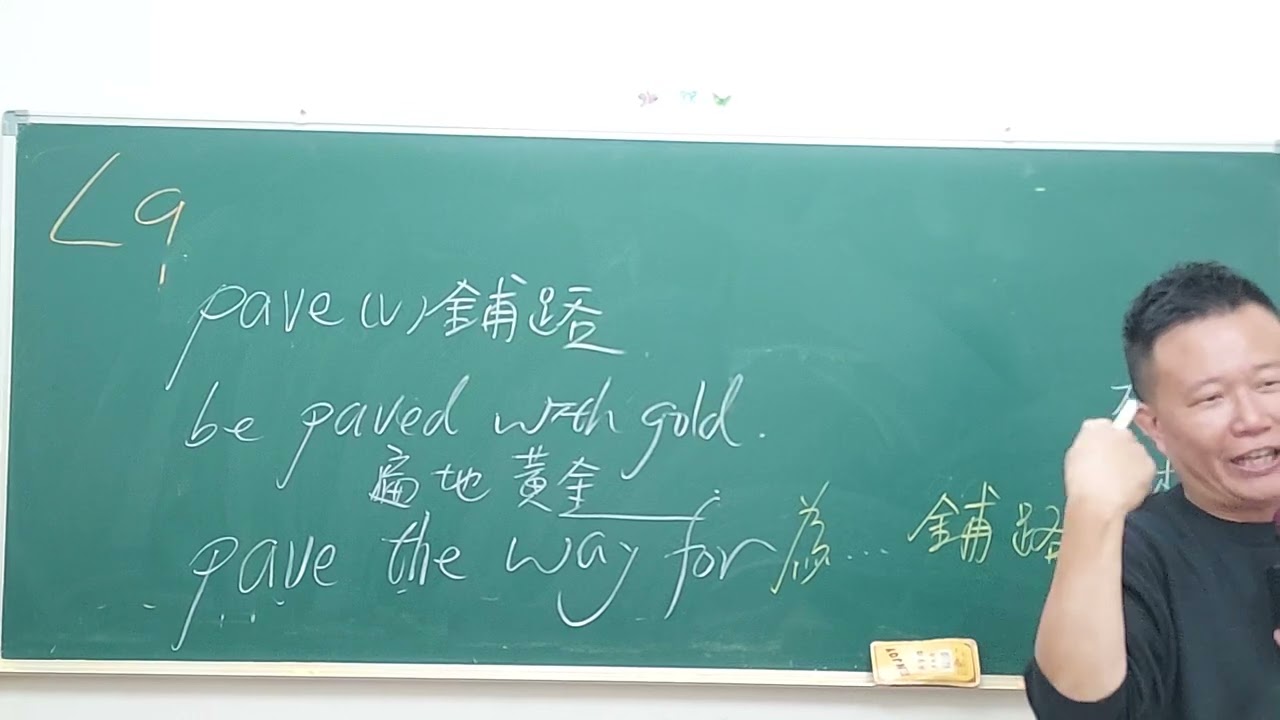 L9
pave (v) 鋪路
be paved with gold.
遍地黃金
pave the way for 為... 鋪路